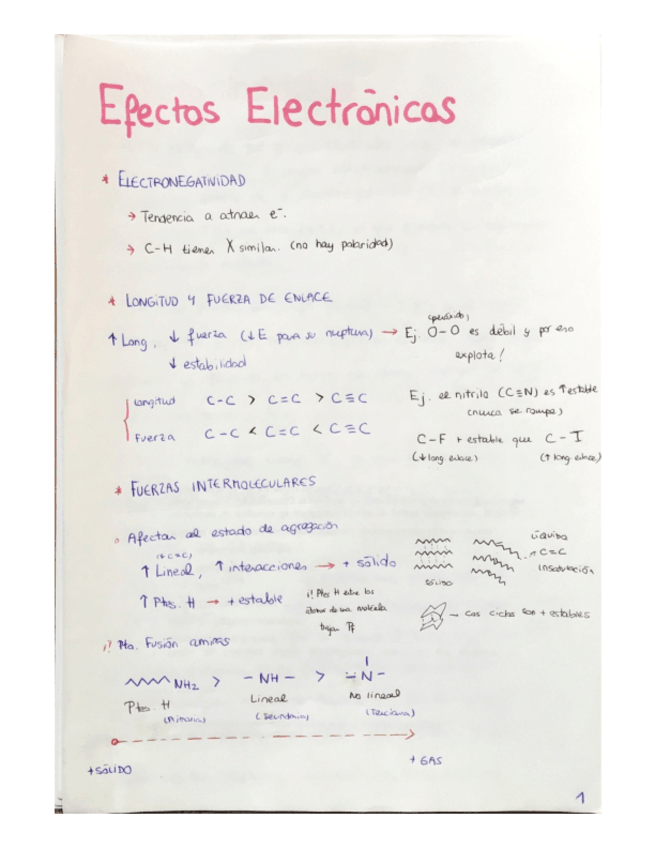 Efectos Electrónicos
* ELECTRONEGATIVIDAD
→ Tendencia a atraer e⁻.
→ C-H tienen X similar. (no hay polaridad)
* LONGITUD Y FUERZA DE ENLACE
↑ Long, ↓ fuerza (↓E para su ruptura) → Ej. O-O es débil y por eso
(peróxido)
explota!
↓ estabilidad
longitud C-C > C=C > C≡C
Fuerza C-C < C=C < C≡C
Ej. el nitrilo (C≡N) es ↑estable
(nunca se rompe)
C-F + estable que C-I
(↓long. enlace) (↑long. enlace)
* FUERZAS INTERMOLECULARES
Afectan al estado de agregación
(↓C=C)
↑ Lineal, ↑ interacciones → + sólido
↑ Ptes. H → + estable
¡! Ptes H entre los
átomos de una molécula
bajan Pf
SÓLIDO
Líquido
↗ C=C
Insaturación
— Los ciclos son + estables
¡! Pto. Fusión aminas
NH₂ > -NH- > -N-
Ptes. H Lineal No lineal
(Primaria) (Secundaria) (Terciaria)
+ SÓLIDO + GAS
1